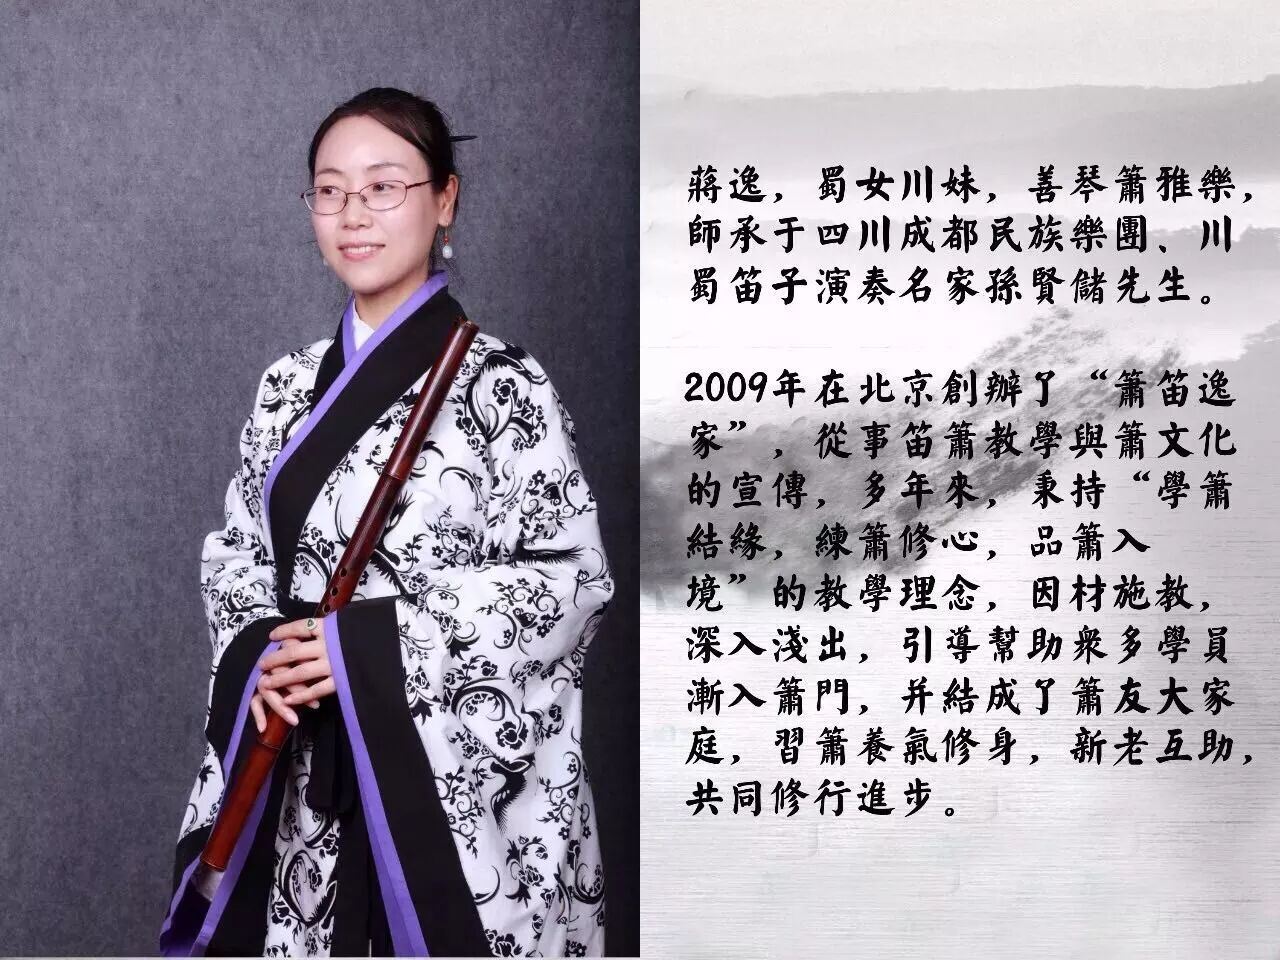 蔣逸，蜀女川妹，善琴簫雅樂，
師承于四川成都民族樂團、川
蜀笛子演奏名家孫賢儲先生。
2009年在北京創辦了“簫笛逸
家”，從事笛簫教學與簫文化
的宣傳，多年來，秉持“學簫
結緣，練簫修心，品簫入
境”的教學理念，因材施教，
深入淺出，引導幫助衆多學員
漸入簫門，并結成了簫友大家
庭，習簫養氣修身，新老互助，
共同修行進步。